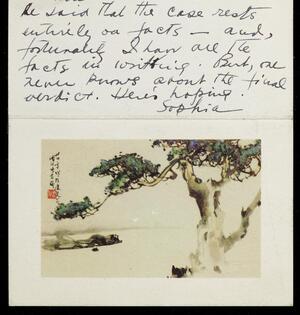 he said that the case rests
entirely on facts — and,
fortunately I have all the
facts in writing. But, one
never knows about the final
verdict. Here's hoping.
Sophia